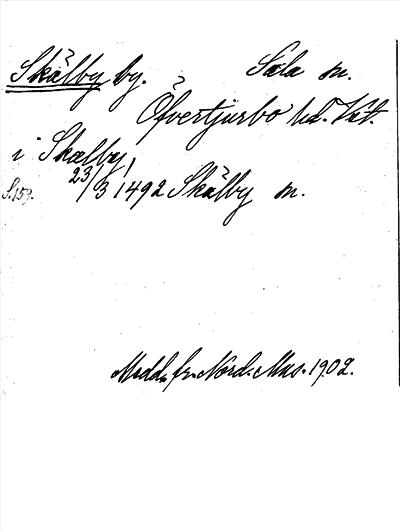 Skälby by. Sala sn.
Öfvertjurbo hd. Vst.
i Skælby
S. 159. 23/3 1492 Skälby sn.
Medd. fr. Nord. Mus. 1902.